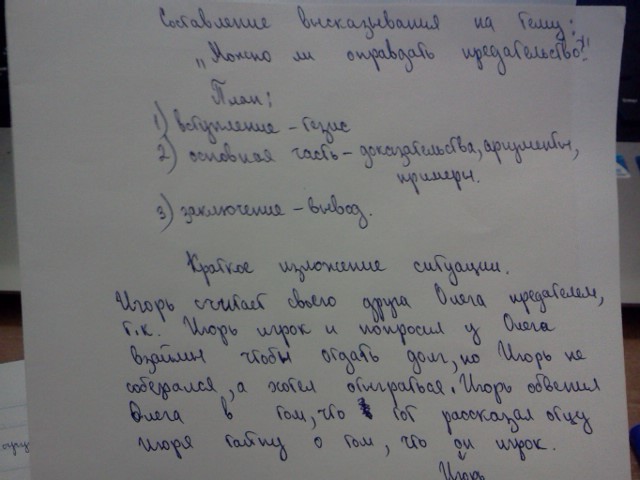 Составление высказывания на тему:
„Можно ли оправдать предательство?"
План:
1) вступление – тезис
2) основная часть – доказательства, аргументы,
примеры.
3) заключение – вывод.
Краткое изложение ситуации.
Игорь считает своего друга Олега предателем,
т.к. Игорь игрок и попросил у Олега
взаймы чтобы отдать долг, но Игорь не
собирался, а хотел отыграться. Игорь обвенил
Олега в том, что тот рассказал отцу
Игоря тайну о том, что он игрок.
Игорь